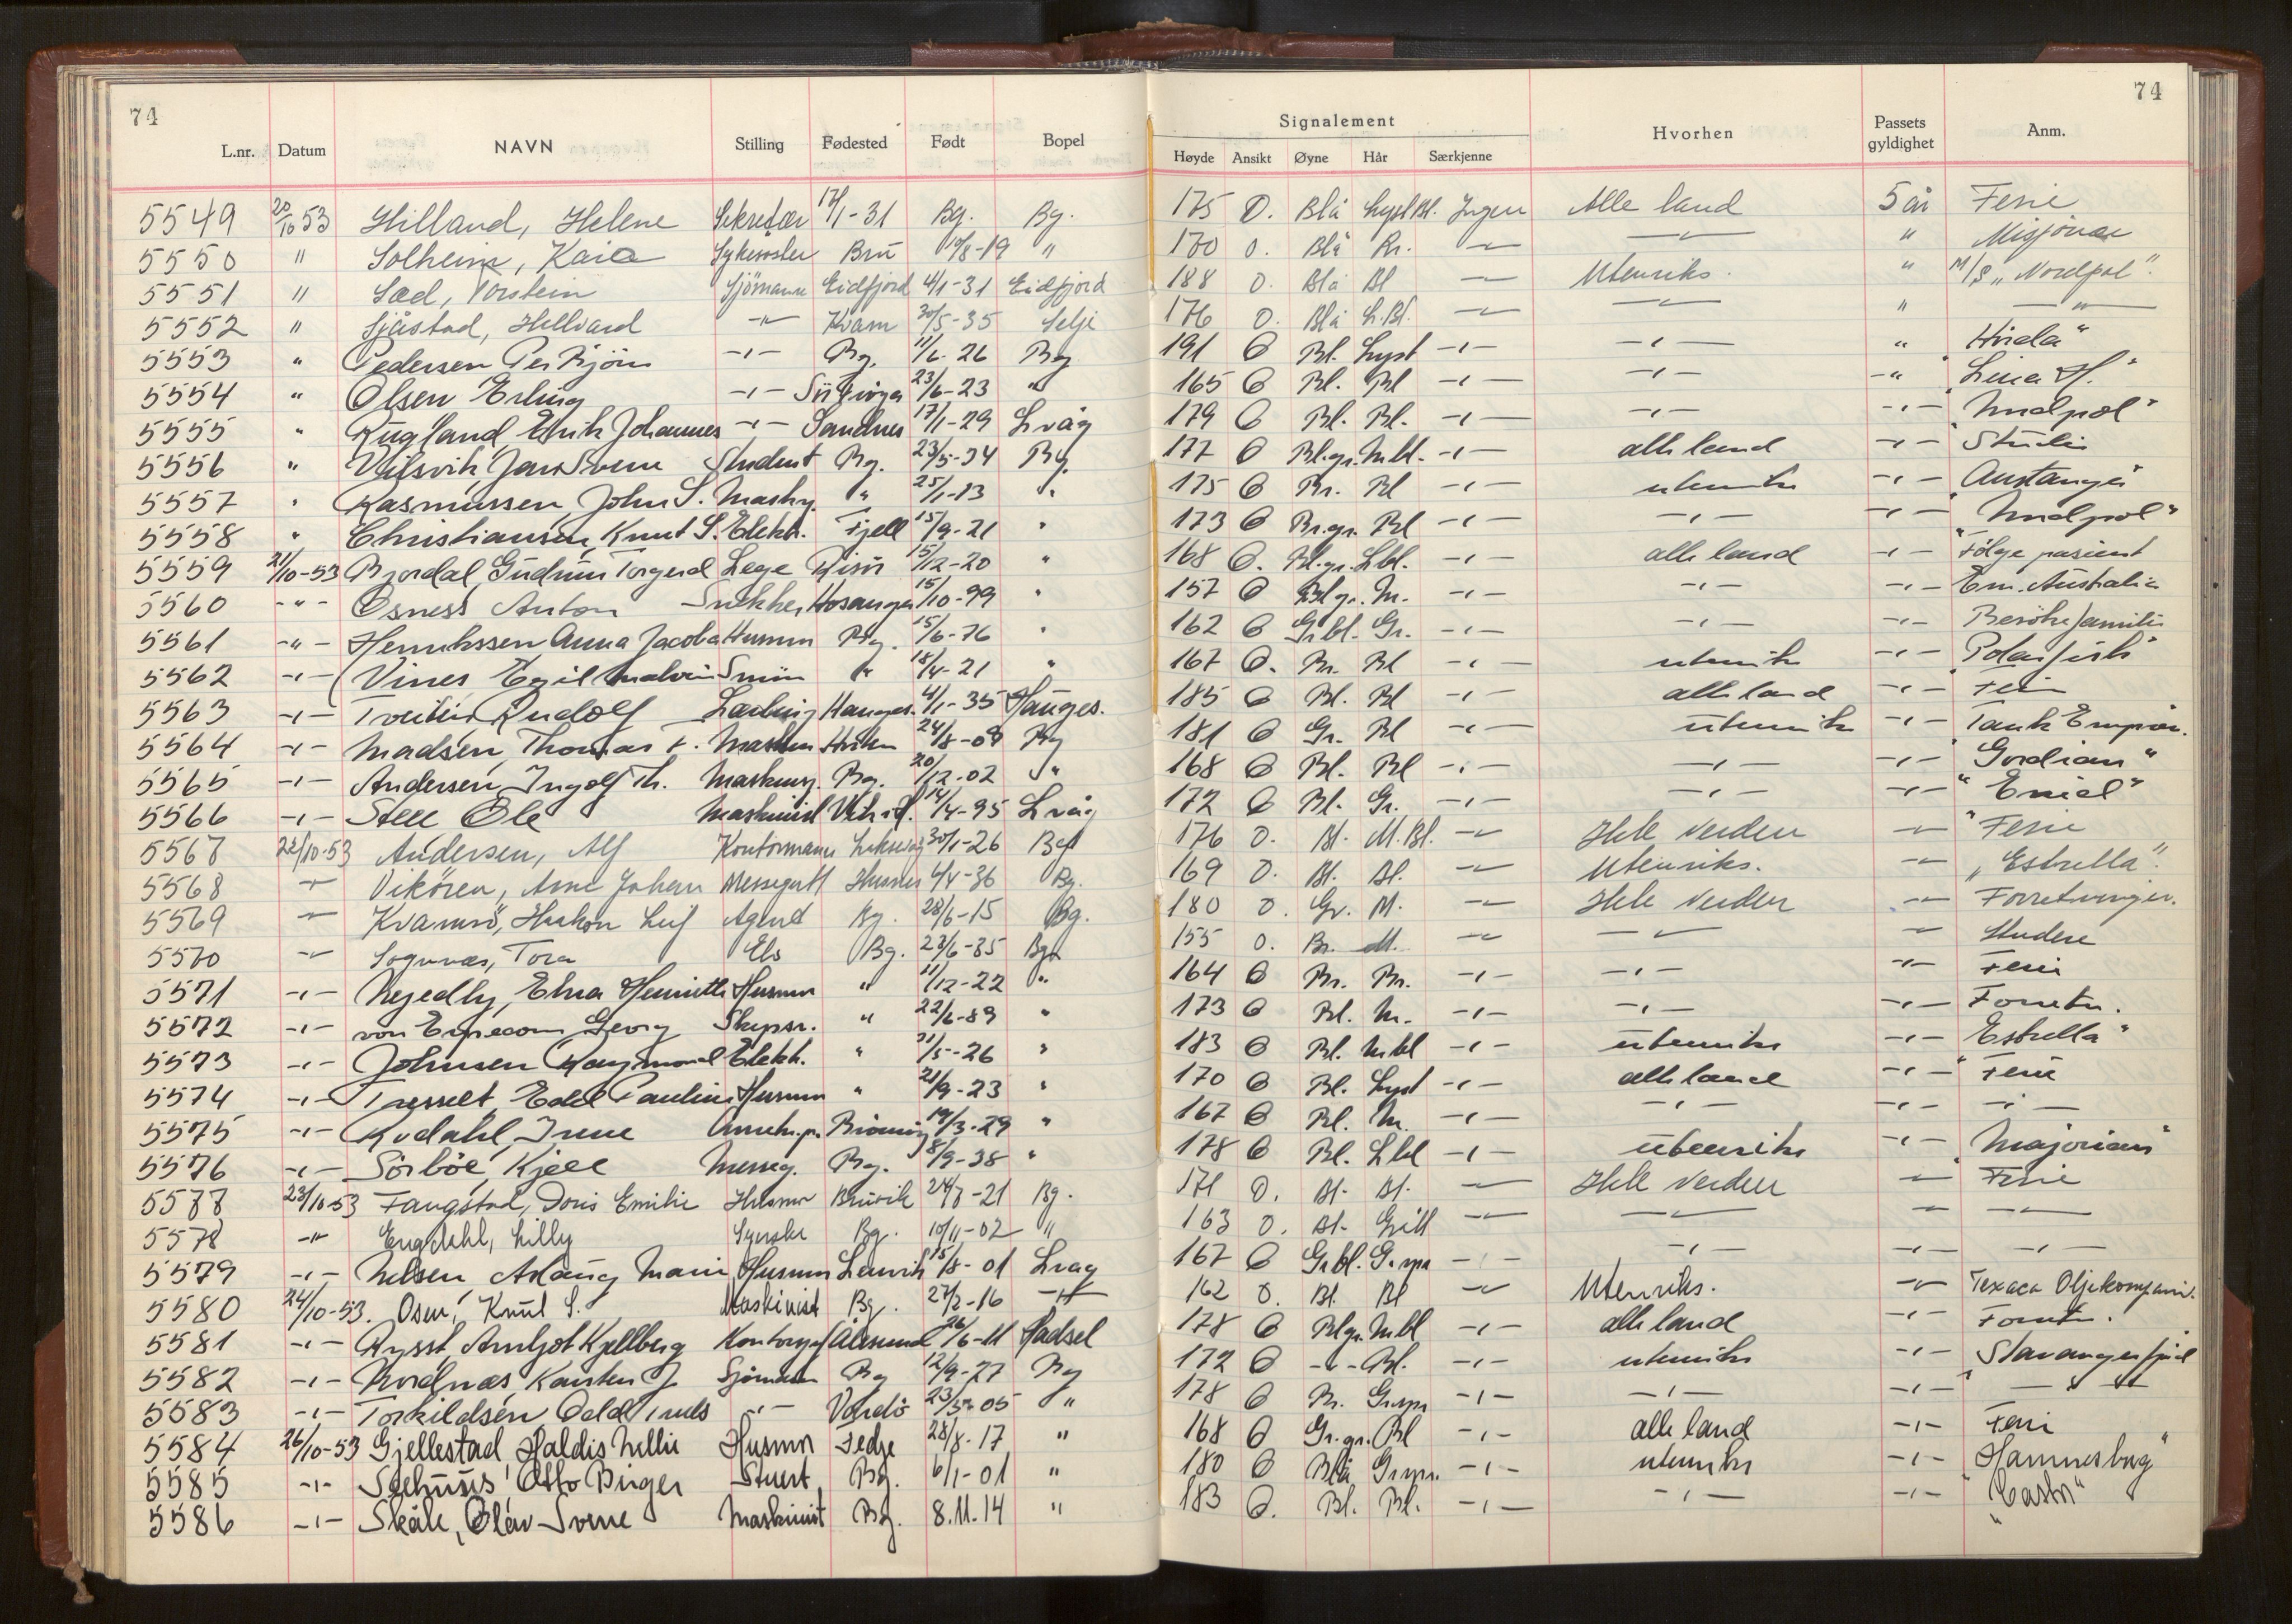 74
74
Signalement
L.nr. Datum NAVN Stilling Fødested Født Bopel Høyde Ansikt Øyne Hår Særkjenne Hvorhen Passets gyldighet Anm.
5549 20/10 53 Hilland, Helene Sekretær 17/1-31 Bg. Bg. 175 O. Blå Lyst Bl. Ingen Alle land 5 år Ferie
5550 " Solheim, Kaia Bru 19 " 170 O. Blå Br. -"- -"- " Misjonær
5551 " Sæd, Torstein Sjömann Eidfjord 4/1-31 Eidfjord 188 O. Blå Bl -"- Utenriks. " M/S "Nordpol".
5552 " Sjåstad, Hellvard -"- Kvam 30/5-35 Selje 176 O. Blå L.Bl. -"- -"- " -"-
5553 " Pedersen Per Bjørn -"- Bg. 11/6-26 Bg 191 O Bl. Lyst -"- -"- " "Hirda"
5554 " Olsen Erling -"- 23/6-23 " 165 O Bl. Bl -"- -"- -"- "Lina H."
5555 " Rugland, Erik Johannes -"- Sandnes 17/1-29 Lvåg 179 O Bl. Bl. -"- -"- -"-
5556 " Student Bg. 23/5-34 Bg. 177 O Bl.gr. M.bl. -"- alle land -"- Studier
5557 " Rasmussen, John S. " 25/1-13 " 175 O Br. Bl -"- utenriks -"- "Austanger"
5558 " Christiansen, Knut S. Elektr. Fjell 15/9-21 " 173 O Br.gr. Bl -"- -"- -"-
5559 21/10-53 Bjordal, Gudrun Torgerd Lege Risör 15/12-20 " 168 O. Bl.gr. L.bl. -"- alle land -"- Følge pasient
5560 -"- Osness Anton Snekker Hosanger 15/10-99 " 157 O Bl.gr. M. -"- -"- -"- Em. Australia
5561 -"- Henrikssen Anna Jacoba Husmor Bg. 15/6-76 " 162 O Gr.bl. Gr. -"- -"- -"- Besøke familie
5562 -"- Vines Egil Malvin " 18/4-21 " 167 O. Br. Bl -"- utenriks -"- "Polarfisk"
5563 -"- Tveiten Rudolf Lærling Hauges. 4/1-35 Hauges. 185 O Bl. Bl -"- alle land -"- Ferie
5564 -"- Madsen, Thomas F. 24/8-08 Bg 181 O Gr. Bl -"- utenriks -"- "Tank Empror.
5565 -"- Andersen, Ingolf Th. Bg. 20/12-02 " 168 O Bl. Bl -"- -"- -"- "Gordian"
5566 -"- Stell Ole Maskinist 14/4-95 Lvåg 172 O Bl. Gr. -"- -"- -"- "Eniel"
5567 22/10-53 Andersen, Alf Kontormann Laksevåg 30/1-26 Bg 176 O. Bl. M.Bl. -"- Hele verden -"- Ferie
5568 -"- Vikören, Arne Johan Messegutt Husnes 4/4-36 Bg. 169 O. Bl. Bl. -"- Utenriks. -"- "Estrella".
5569 -"- Kvamsö, Haakon Leif Agent Bg. 28/6-15 Bg. 180 O. Gr. M. -"- Hele verden -"- Forretninger.
5570 -"- Sognnæs, Tora Elev Bg. 23/6-35 Bg. 155 O. Br. M. -"- -"- -"- Studere
5571 -"- Nejedly, Elna Henriette Husmor " 11/12-22 " 164 O Br. Br. -"- -"- -"- Ferie
5572 -"- von Erpecom Georg Skipsr. " 22/6-89 " 173 O Bl. M. -"- -"- -"- Forretn.
5573 -"- Johnsen Raymond Elektr. " 21/5-26 " 183 O Bl. M.bl -"- utenriks -"- "Estrella"
5574 -"- Tresselt, Edel Pauline Husmor " 21/9-23 " 170 O Bl. Lyst -"- alle land -"- Ferie
5575 -"- Kvdahl, Irene 19/3-29 " 167 O Bl. M. -"- -"- -"- -"-
5576 -"- Sörböe, Kjell Messeg. Bg. 8/9-38 " 178 O Bl. L.bl -"- utenriks -"- "Majorian"
5577 23/10-53 Fangstad, Doris Emilie Husmor Bruvik 24/8-21 Bg. 171 O. Bl. Bl. -"- Hele verden -"- Ferie
5578 -"- Engdahl, Lilly Bg. 10/11-02 " 163 O. Bl. Grått -"- -"- -"- -"-
5579 -"- Nilsen, Aslaug Marie Husmor Lenvik 15/8-01 Lvåg 167 O Gr.bl. Gr.spr -"- -"- -"- -"-
5580 24/10-53. Osen, Knut S. Maskinist Bg. 27/2-16 -"- 162 O. Bl. Bl -"- Utenriks. -"- Texaco Oljekompani.
5581 -"- Rysst, Arnljot Kjellberg Ålesund 26/6-11 Hadsel 178 O Bl.gr. M.bl -"- alle land -"- Forretn.
5582 -"- Nordnæs, Karsten J Sjömann Bg 12/9-27 Bg 172 O -"- Bl. -"- utenriks -"- "Stavangerfjord
5583 -"- Torkildsen Odd Truls -"- Vardö 23/5-05 " 178 O Br. Gr.spr -"- -"- -"- -"-
5584 26/10-53 Gjellestad, Haldis Nellie Husmor Fedje 28/8-17 " 168 O Gr.gr. Bl -"- alle land -"- Ferie
5585 -"- Seehuus Otto Birger Stuert Bg. 6/1-01 " 180 O Blå Gr.spr. -"- utenriks -"- "Hamnesbug"
5586 -"- Skåle, Olav Sverre Maskinist Bg. 8.11.14 " 183 O. Bl. Bl. -"- -"- -"- "Castor"